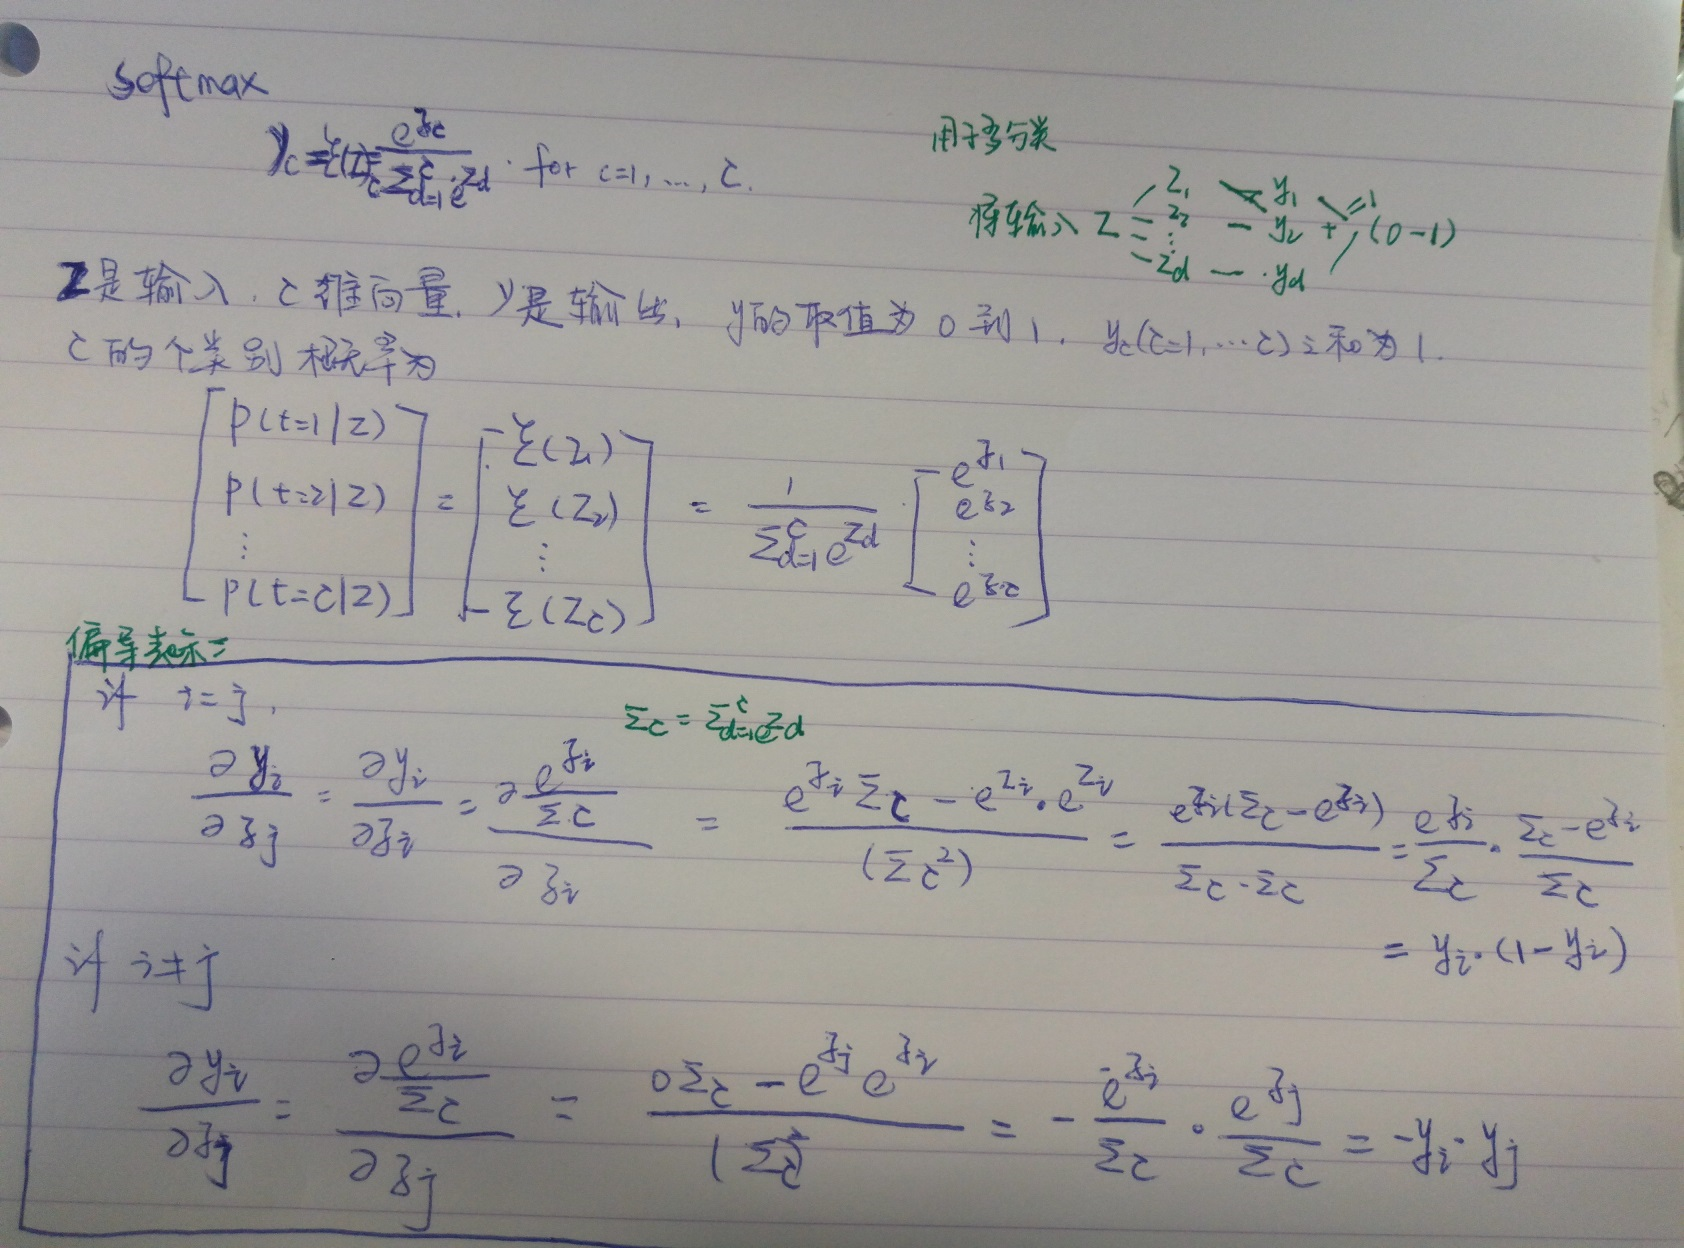 softmax
y_c = ξ(z)_c = e^{z_c} / Σ_{d=1}^{C} e^{z_d} · for c=1, ..., C.
用于多分类
将输入 Z z_1 y_1 =1
z_2 — y_2 + (0-1)
⋮
z_d — · y_d
Z是输入, C维向量, y是输出, y的取值为0到1, y_c(c=1, ...C)之和为1.
C的个类别概率为
[P(t=1|z) P(t=2|z) ⋮ P(t=C|z)] = [ξ(z_1) ξ(z_2) ⋮ ξ(z_C)] = 1 / Σ_{d=1}^{C} e^{z_d} · [e^{z_1} e^{z_2} ⋮ e^{z_C}]
偏导表示=
对 i=j,
Σ_C = Σ_{d=1}^{C} e^{z_d}
∂y_i/∂z_j = ∂y_i/∂z_i = ∂(e^{z_i}/Σ_C)/∂z_i = (e^{z_i} Σ_C - e^{z_i} · e^{z_i})/(Σ_C^2) = e^{z_i}(Σ_C - e^{z_i})/(Σ_C · Σ_C) = e^{z_i}/Σ_C · (Σ_C - e^{z_i})/Σ_C
= y_i · (1 - y_i)
对 i≠j
∂y_i/∂z_j = ∂(e^{z_i}/Σ_C)/∂z_j = (0Σ_C - e^{z_j} e^{z_i})/(Σ_C^2) = - e^{z_i}/Σ_C · e^{z_j}/Σ_C = -y_i · y_j